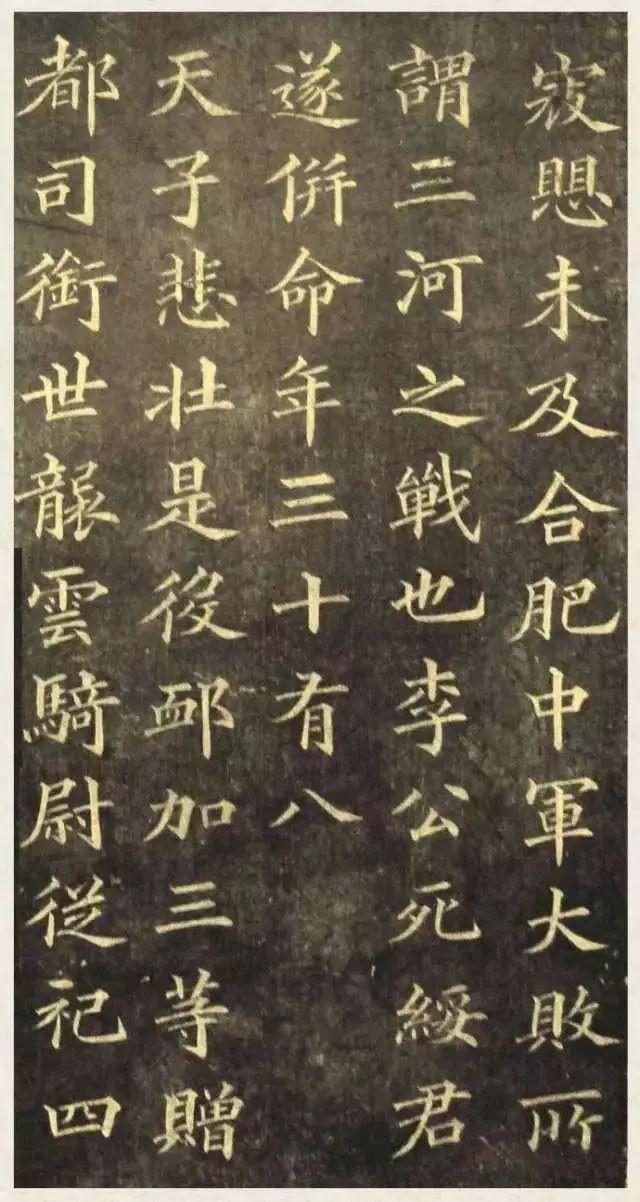 懸未及合肥中軍大敗所
謂三河之戰也李公死綏君
遂併命年三十有八
天子悲壯是役卹加三等贈
都司銜世襲雲騎尉從祀四